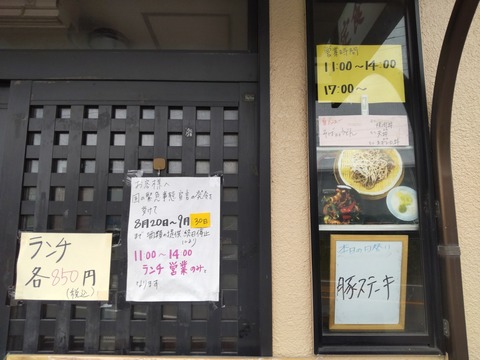 ランチ
各850円
(税込)
お客様へ
国の緊急事態宣言の発令を
受けて
8月20日~9月30日
まで酒類の提供終日停止
により
11:00~14:00
ランチ営業のみ、
なります
営業時間
11:00~14:00
17:00~
本日の日替り
豚ステーキ